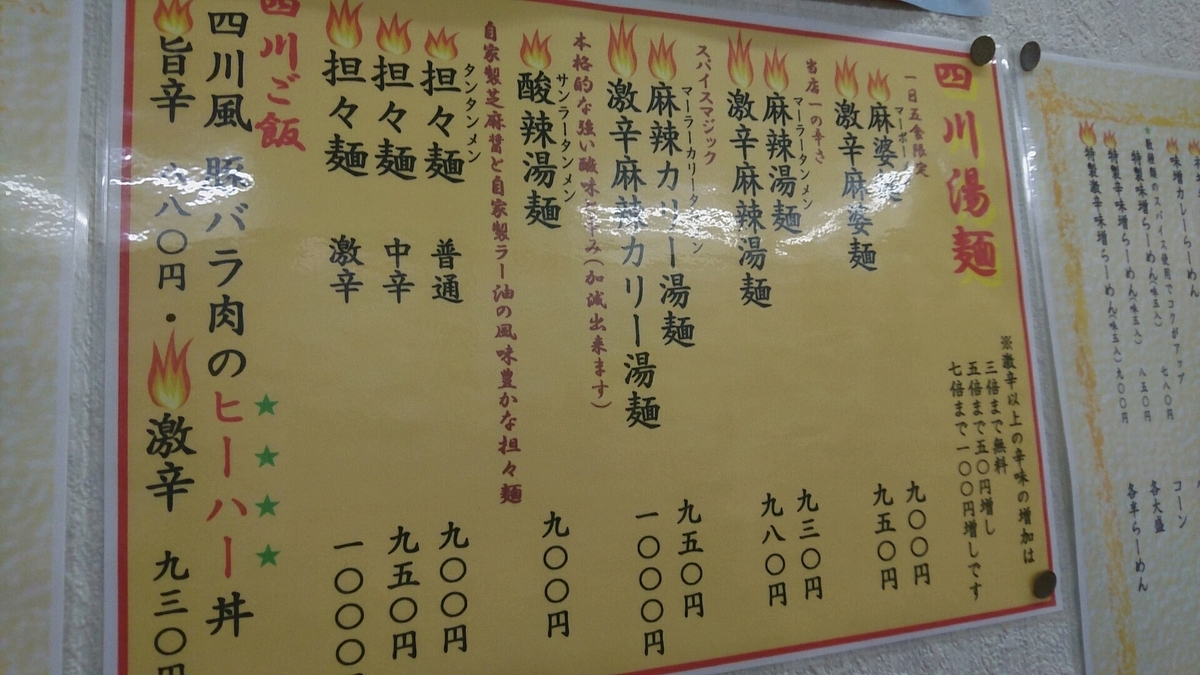 四川湯麺
※激辛以上の辛味の増加は
三倍まで無料
五倍まで五〇円増し
七倍まで一〇〇円増しです
一日五食限定
マーボー
麻婆麺 九〇〇円
激辛麻婆麺 九五〇円
当店一の辛さ
マーラータンメン
麻辣湯麺 九三〇円
激辛麻辣湯麺 九八〇円
スパイスマジック
麻辣カリー湯麺 九五〇円
激辛麻辣カリー湯麺 一〇〇〇円
本格的な強い酸味
み(加減出来ます)
サンラータンメン
酸辣湯麺 九〇〇円
自家製芝麻醤と自家製ラー油の風味豊かな担々麺
タンタンメン
担々麺 普通 九〇〇円
担々麺 中辛 九五〇円
担々麺 激辛 一〇〇〇
四川ご飯
★★★★
四川風 豚バラ肉のヒーハー丼
旨辛 八〇円・激辛 九三〇円
味噌カレーらーめん 七八〇円
特製味噌らーめん(味玉入) 八五〇円
特製辛味噌らーめん(味玉入)
特製激辛味噌らーめん(味玉入) 九〇〇円
コーン
各大盛
各半らーめん